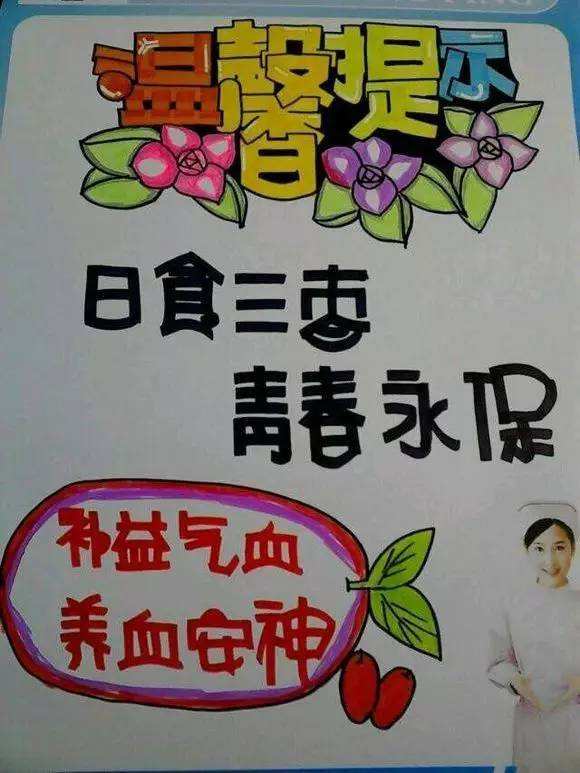 温馨提示
日食三枣
青春永保
补益气血
养血安神